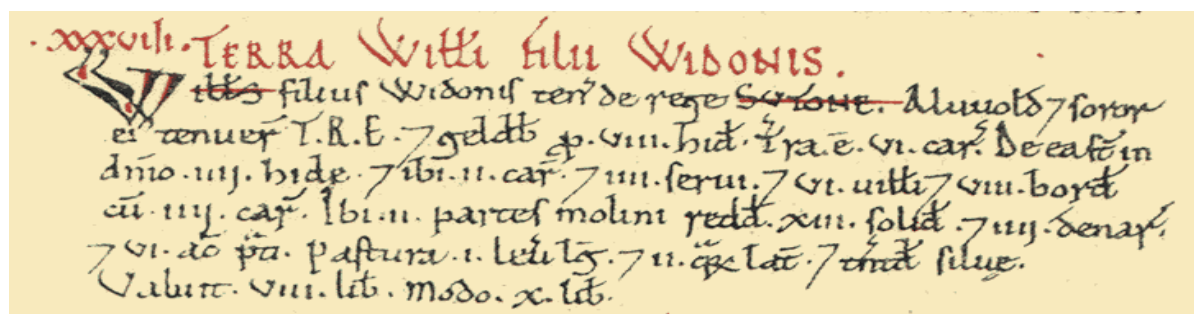 .XXXVIII. TERRA Willi filii WIDONIS.
Wills filius Widonis ten' de rege SVTONE. Aluuold ⁊ soror
ei' tenuer̄ T.R.E. ⁊ geldb̄ ꝓ. VIII. hid̄. Tr̄a.ē. VI. car̄. De ea st̄ in
dn̄io. IIII. hidę. ⁊ ibi. II. car̄. ⁊ IIII. serui. ⁊ VI. uilli ⁊ VIII. bord̄
cū. IIII. car̄. Ibi. II. partes molini redd̄. XIII. solid̄. ⁊ IIII. denar̄.
⁊ VI. ac̄ p̄ti. Pastura. I. leu' lḡ. ⁊ II. q̄ꝝ lat̄. ⁊ tn̄td̄ siluę.
Valuit. VIII. lib̄. Modo. X. lib̄.